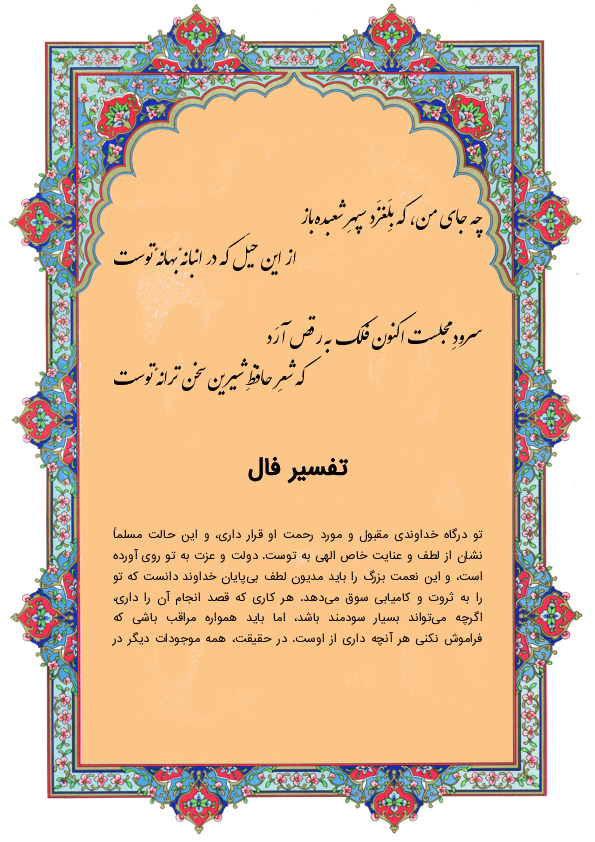 چه جای من، که بِلَغزَد سپهرِ شعبده‌باز
از این حیَل که در انبانهٔ بهانهٔ توست
سرودِ مجلست اکنون فلک به رقص آرَد
که شعرِ حافظِ شیرین سخن ترانه توست
تفسیر فال
تو درگاه خداوندی مقبول و مورد رحمت او قرار داری، و این حالت مسلماً
نشان از لطف و عنایت خاص الهی به توست. دولت و عزت به تو روی آورده
است، و این نعمت بزرگ را باید مدیون لطف بی‌پایان خداوند دانست که تو
را به ثروت و کامیابی سوق می‌دهد. هر کاری که قصد انجام آن را داری،
اگرچه می‌تواند بسیار سودمند باشد، اما باید همواره مراقب باشی که
فراموش نکنی هر آنچه داری از اوست. در حقیقت، همه موجودات دیگر در